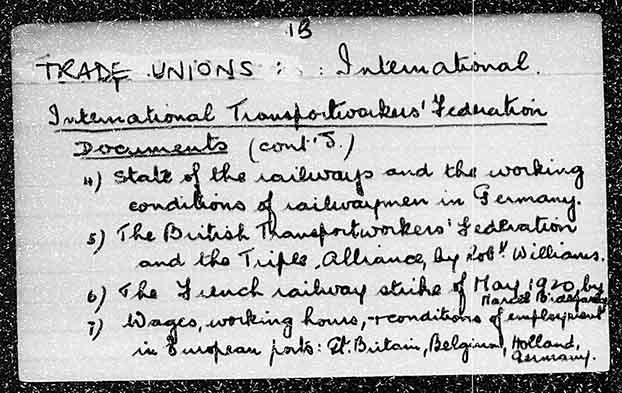 1B
TRADE UNIONS : : International.
International Transportworkers' Federation
Documents (cont'd.)
4) State of the railways and the working
conditions of railwaymen in Germany.
5) The British Transportworkers' Federation
and the Triple Alliance, by Robt. Williams.
6) The French railway strike of May 1920, by
Marcel
7) Wages, working hours, + conditions of employment
in European ports: Gt. Britain, Belgium, Holland,
Germany.